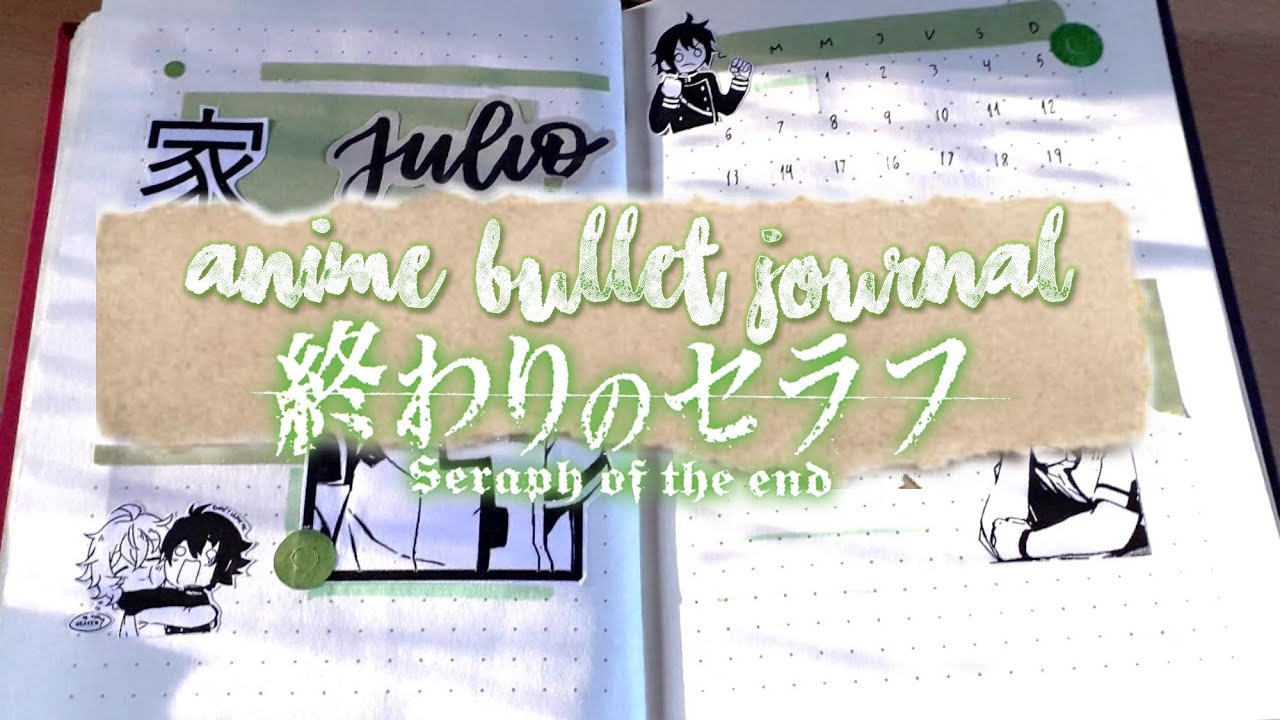 家
Julio
M M J V S D
1 2 3 4 5
6 7 8 9 10 11 12
13 14 15 16 17 18 19
anime bullet journal
終わりのセラフ
Seraph of the end